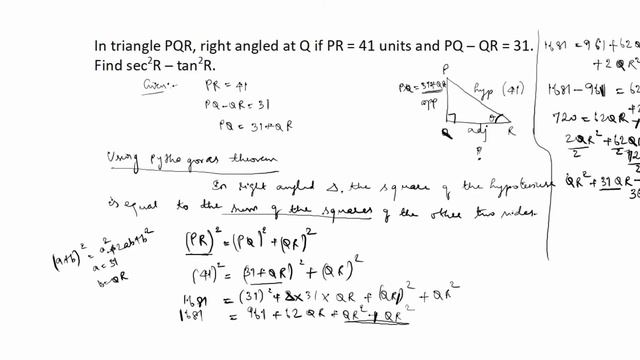 In triangle PQR, right angled at Q if PR = 41 units and PQ – QR = 31.
Find sec²R – tan²R.
Given:-
PR = 41
PQ-QR = 31
PQ = 31+QR
P
PQ = 31+QR
opp
hyp (41)
θ
Q
adj
R
?
Using Pythagoras theorem
In right angled Δ, the square of the hypotenuse
is equal to the sum of the squares of the other two sides
(PR)² = (PQ)² + (QR)²
(a+b)² = a²+2ab+b²
a = 31
b = QR
(41)² = (31+QR)² + (QR)²
1681 = (31)² + 2×31×QR + (QR)² + QR²
1681 = 961 + 62QR + QR² + QR²
1681 = 961 + 62Q
+ 2QR²
1681 - 961 = 62
720 = 62QR
2QR² + 62
2 2
QR² + 31QR -